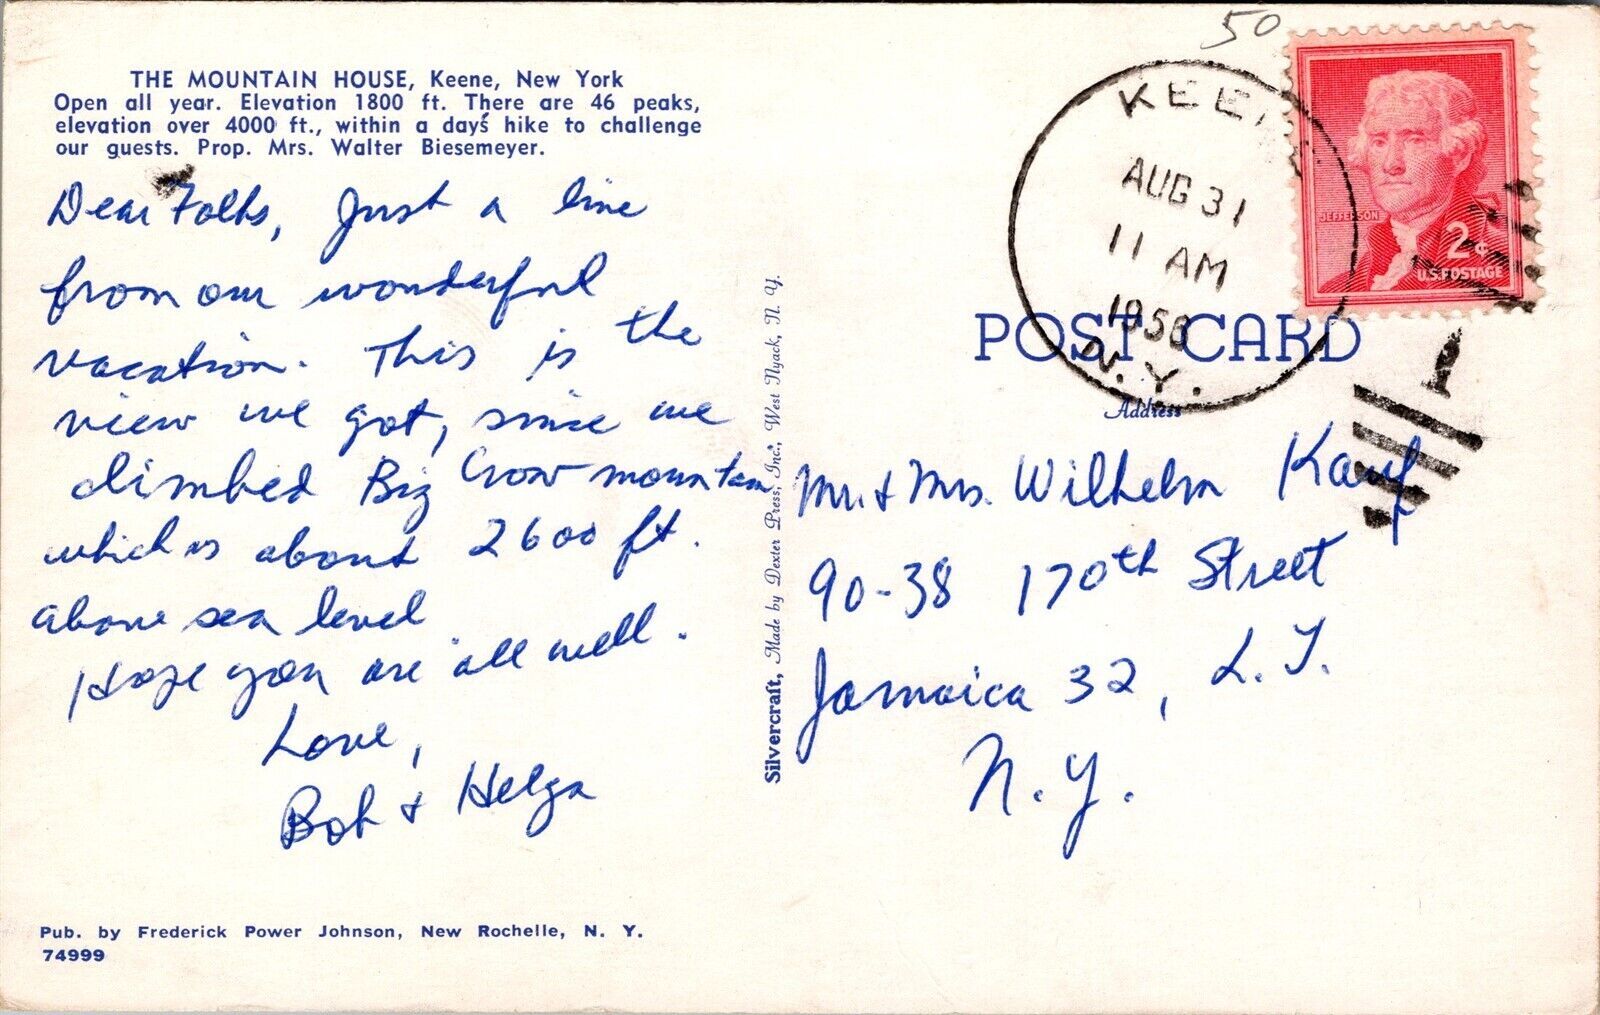 THE MOUNTAIN HOUSE, Keene, New York
Open all year. Elevation 1800 ft. There are 46 peaks,
elevation over 4000 ft., within a day's hike to challenge
our guests. Prop. Mrs. Walter Biesemeyer.
Dear Folks, Just a line
from our wonderful
vacation. This is the
view we got, since we
climbed Big Crow mountain
which is about 2600 ft.
above sea level
Hope you are all well.
Love,
Bob & Helga
Pub. by Frederick Power Johnson, New Rochelle, N. Y.
74999
Silvercraft, Made by Dexter Press, Inc., West Nyack, N. Y.
50
KEENE
AUG 31
11 AM
1956
N.Y.
JEFFERSON
2¢
U.S. POSTAGE
1
POST CARD
Address
Mr. & Mrs. Wilhelm Kauf
90-38 170th Street
Jamaica 32, L.I.
N.Y.